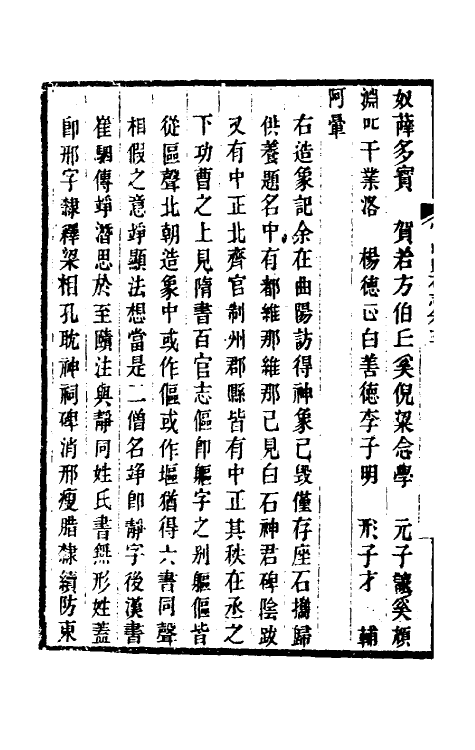 奴薛多寳　賀若方伯丘奚倪梁念學　元子讓奚頹
淵叱干業洛　楊德正白善德李子明　形子才　輔
阿暈
右造象記余在曲陽訪得神象已毀僅存座石攜歸
供養題名中有都維那維那已見白石神君碑隂跋
又有中正北齊官制州郡縣皆有中正其秩在丞之
下功曹之上見隋書百官志傴卽軀字之别軀傴皆
從區聲北朝造象中或作傴或作塸猶得六書同聲
相假之意竫顯法想當是二僧名竫卽靜字後漢書
崔駰傳竫潛思於至賾注與靜同姓氏書無形姓蓋
卽邢字隸釋梁相孔耽神祠碑消邢瘦腊隸續防東